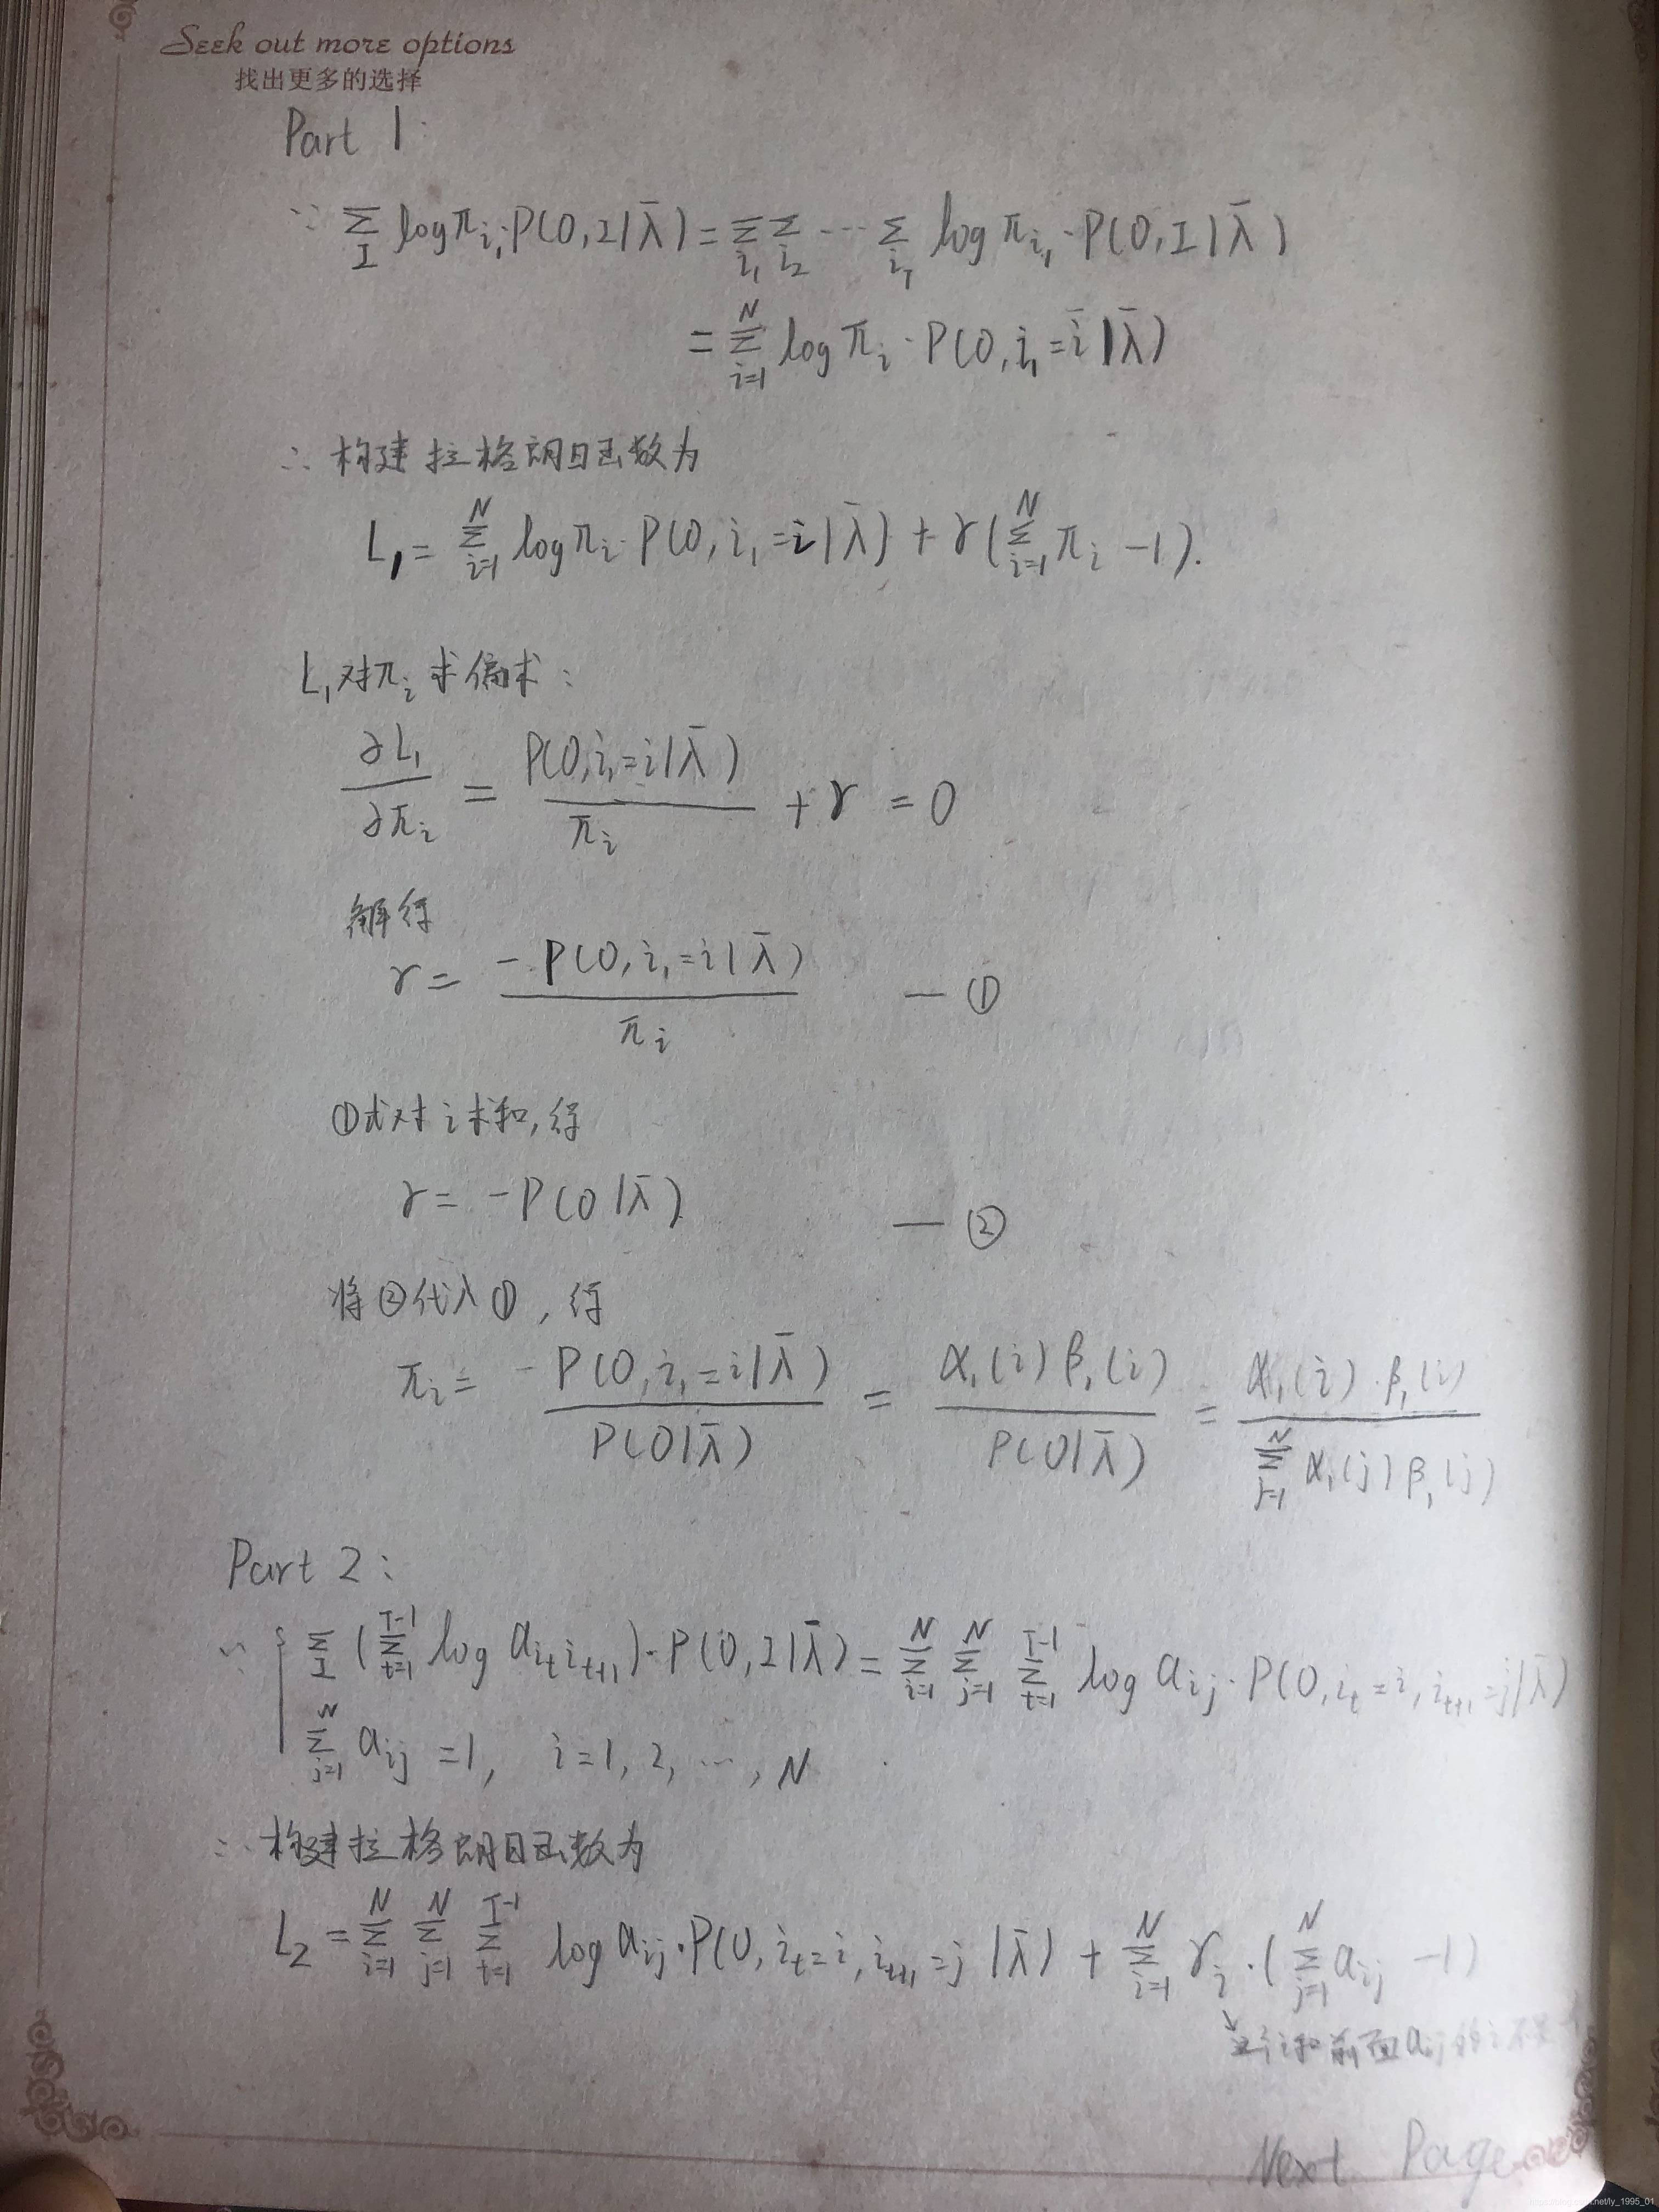 Seek out more options
找出更多的选择
Part 1:
∵ Σ_I logπ_{i₁}·P(O,I|λ̄) = Σ_{i₁} Σ_{i₂} ⋯ Σ_{i_T} log π_{i₁}·P(O,I|λ̄)
= Σ_{i=1}^{N} log π_i · P(O, i₁=i|λ̄)
∴ 构建拉格朗日函数为
L₁ = Σ_{i=1}^{N} logπ_i·P(O, i₁=i|λ̄) + γ(Σ_{i=1}^{N} π_i −1).
L₁对π_i求偏求:
∂L₁/∂π_i = P(O,i₁=i|λ̄)/π_i + γ = 0
解得
γ = −P(O, i₁=i|λ̄)/π_i —①
①式对i求和,得
γ = −P(O|λ̄) —②
将②代入①,得
π_i = −P(O, i₁=i|λ̄)/P(O|λ̄) = α₁(i)β₁(i)/P(O|λ̄) = α₁(i)·β₁(i)/Σ_{j=1}^{N} α₁(j)β₁(j)
Part 2:
∵ { Σ_I (Σ_{t=1}^{T-1} log a_{i_t i_{t+1}})·P(O,I|λ̄) = Σ_{i=1}^{N} Σ_{j=1}^{N} Σ_{t=1}^{T-1} log a_{ij}·P(O, i_t=i, i_{t+1}=j|λ̄)
Σ_{j=1}^{N} a_{ij} = 1, i=1, 2, ⋯, N
∴ 构建拉格朗日函数为
L₂ = Σ_{i=1}^{N} Σ_{j=1}^{N} Σ_{t=1}^{T-1} log a_{ij}·P(O, i_t=i, i_{t+1}=j|λ̄) + Σ_{i=1}^{N} γ_i·(Σ_{j=1}^{N} a_{ij} −1)
↘ i和前面a_{ij}的i不
Next Page